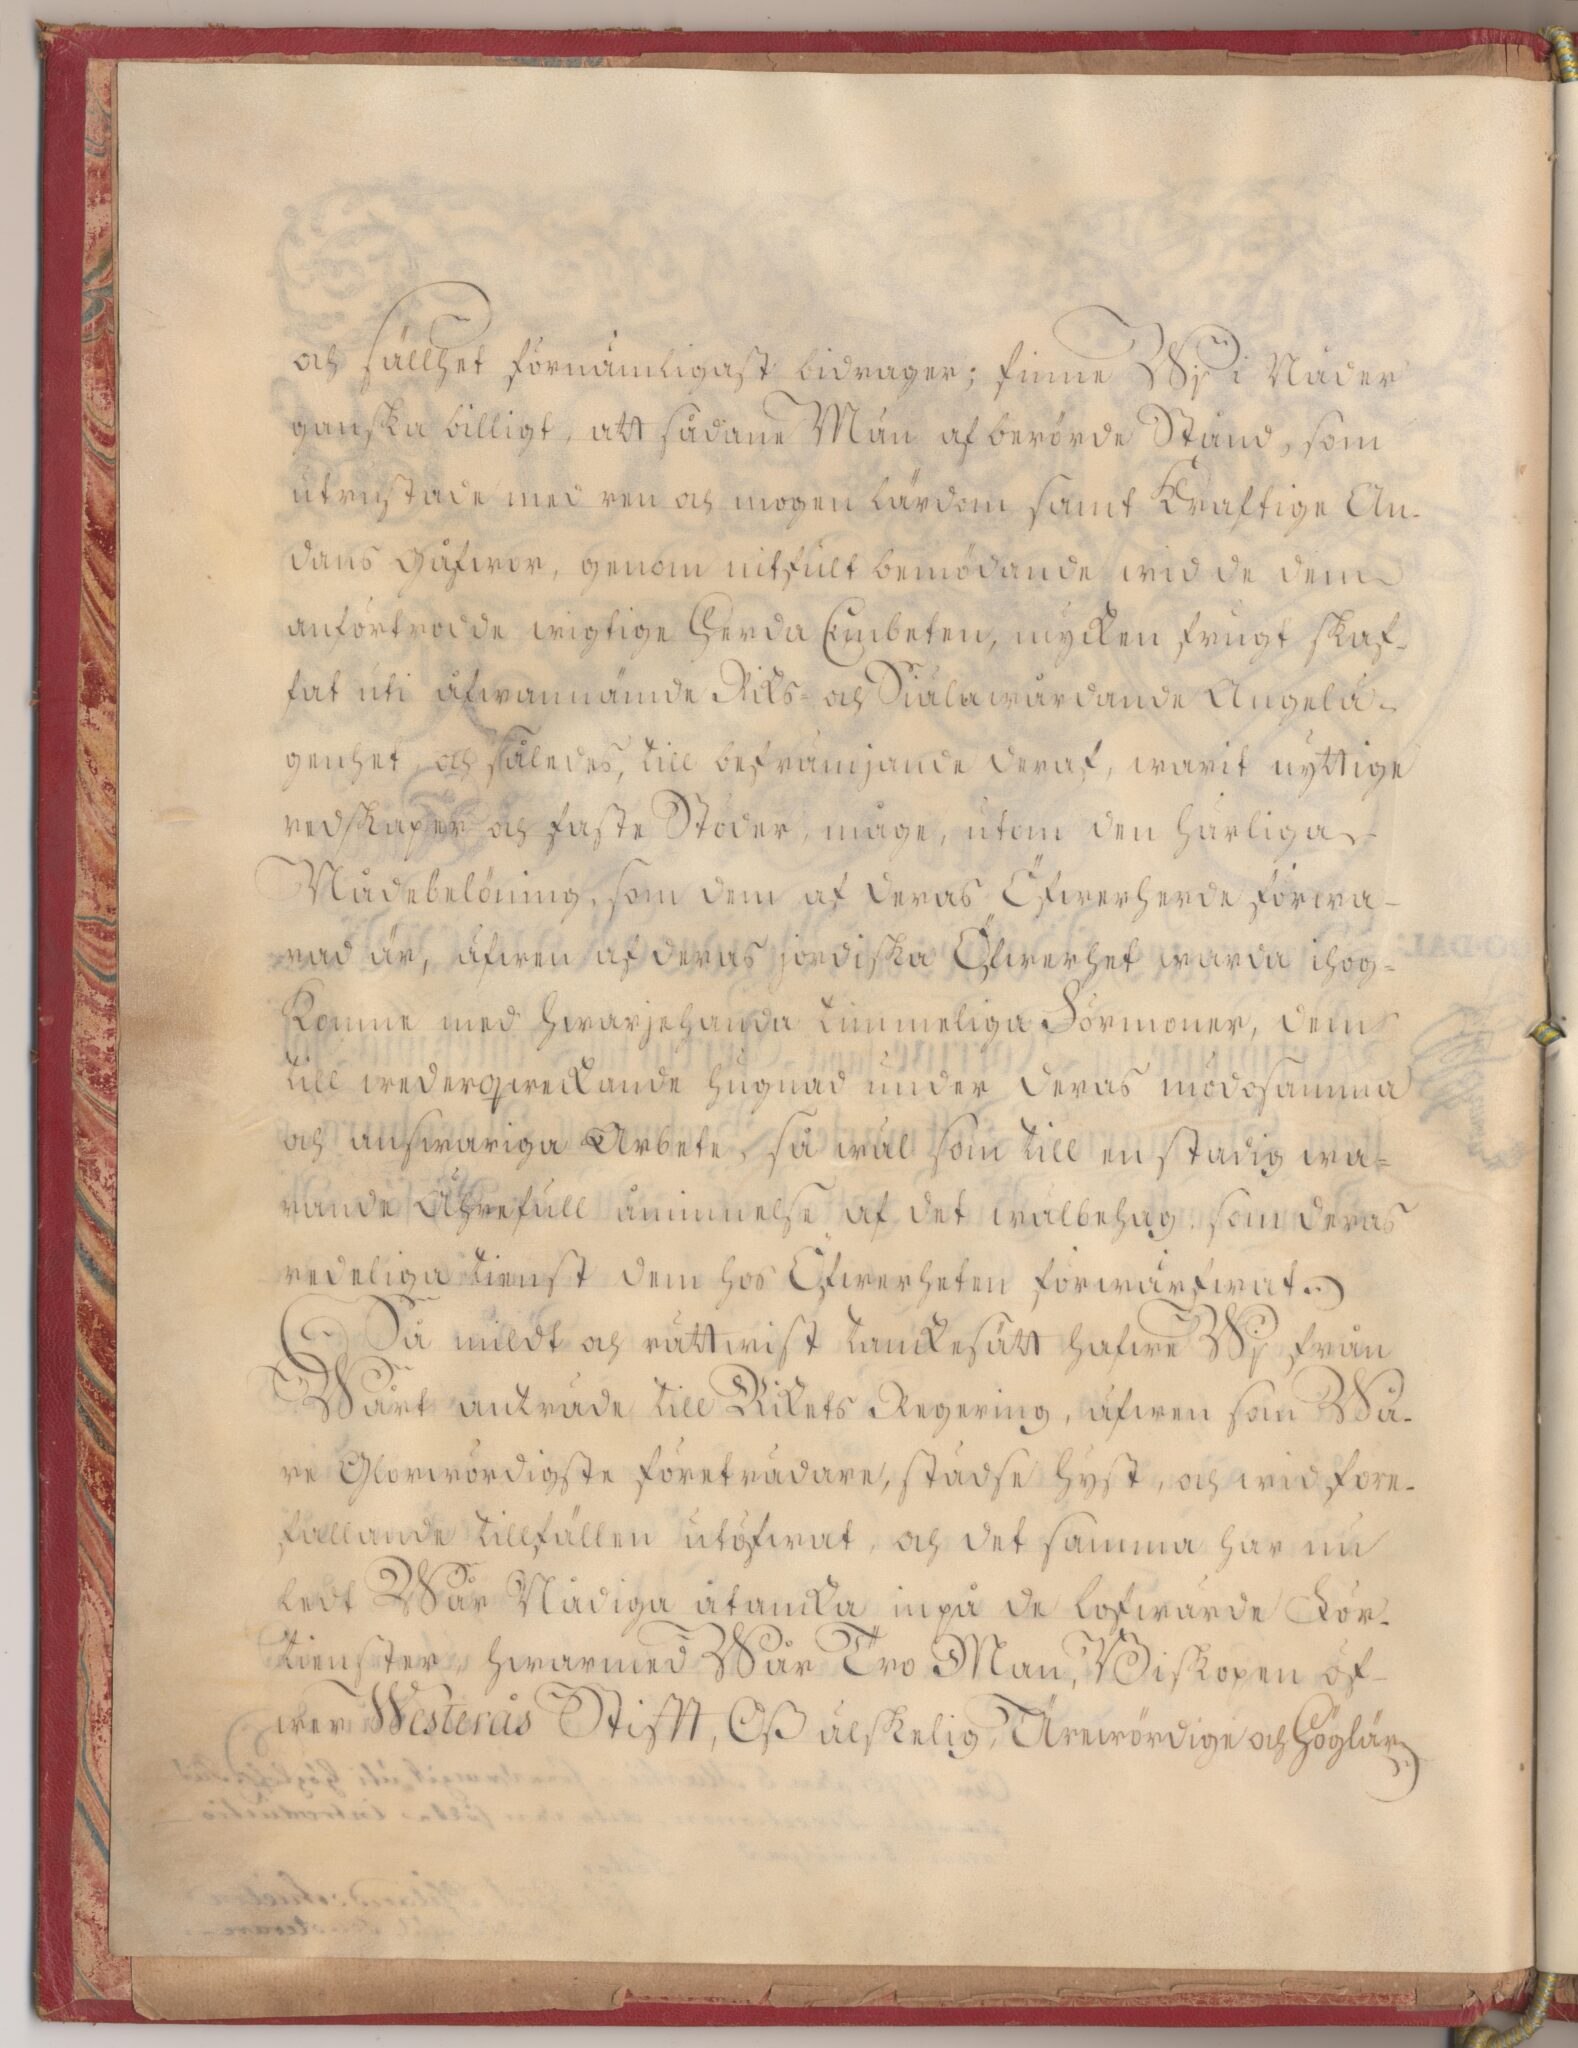 och sällhet förnämligast bidrager; finne Wij i Nåder
ganska billigt, att sådane Män af berörde Stånd, som
utrustade med ren och mogen lärdom samt Kraftige An-
dans Gåfwor, genom nitfult bemödande wid de dem
anförtrodde wigtige Herda Embeten, mycken frugt skaf-
fat uti ofwannämde Riks- och Siälawårdande Angelä-
genhet, och således, till befrämjande deraf, warit nyttige
redskaper och faste Stöder, måge, utom den härliga
Nådebelöning, som dem af deras Öfwerherde förwa-
rad är, äfwen af deras jordiska Öfwerhet warda ihog-
komne med hwarjehanda timmeliga Förmoner, dem
till wederqweckande hugnad under deras mödosamma
och answariga Arbete, så wäl som till en stadig wa-
rande Ährefull åminnelse af det wälbehag, som deras
redeliga tienst dem hos Öfwerheten förwärfwat.
Så mildt och rättwist tanckesätt hafwe Wij från
Wårt anträde till Rikets Regering, äfwen som Wå-
re Glorwördigste företrädare, städse hyst, och wid före-
fallande tillfällen utöfwat, och det samma har nu
ledt Wår Nådiga åtancka inpå de lofwärde För-
tienster, hwarmed Wår Tro Man, Biskopen öf-
wer Westerås Stifft, Oß älskelig, Ärewördige och Höglär